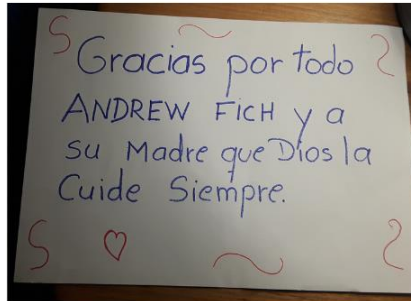 Gracias por todo
ANDREW FicH y a
su Madre que Dios la
Cuide Siempre.